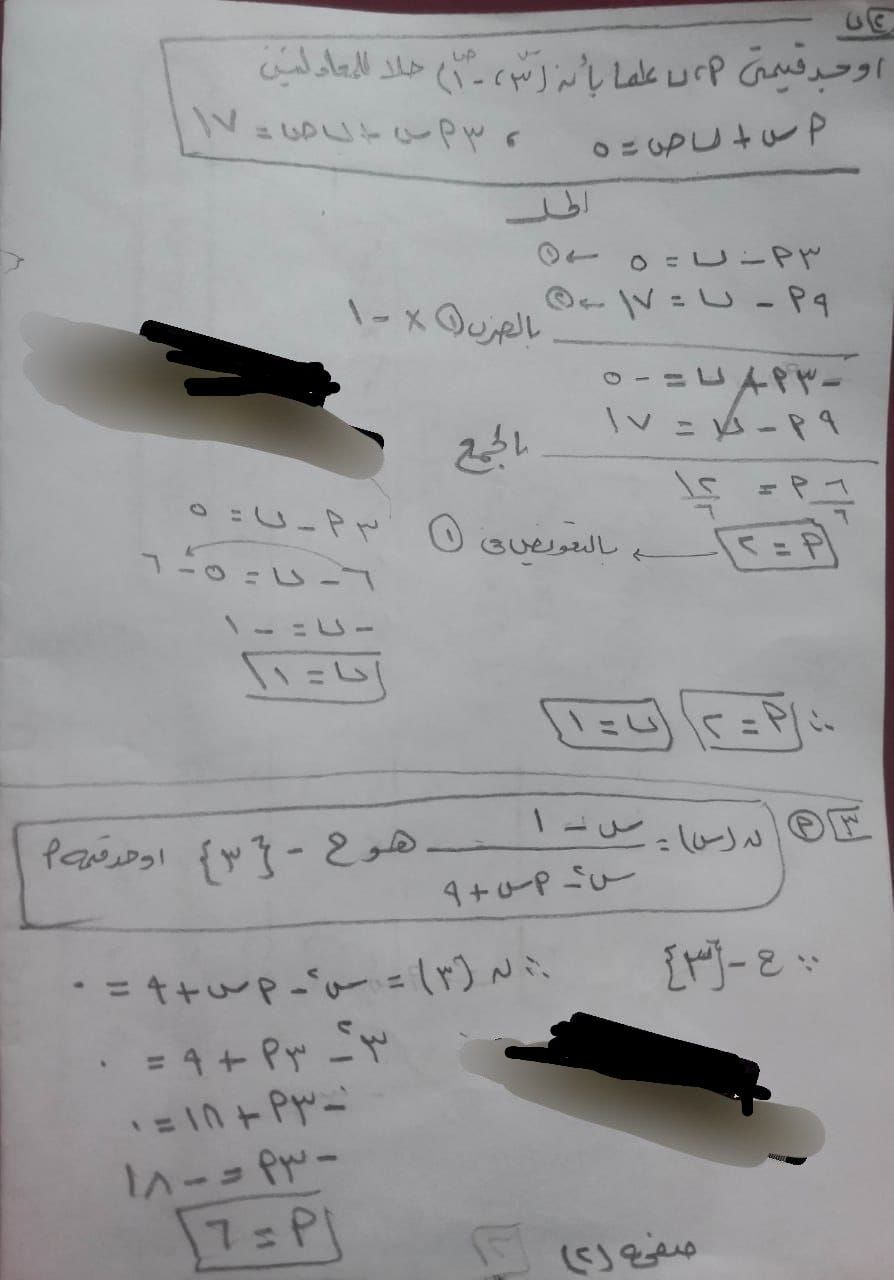 ب ٢
اوجد قيمتى م، ب علما بأن (٣، -١) حلا للمعادلتين
س ص
م س + ب ص = ٥ ، ٣م س + ب ص = ١٧
الحل
٣م - ب = ٥ ← ①
٩م - ب = ١٧ ← ②
بالضرب ① × -١
-٣م + ب = -٥
٩م - ب = ١٧
بالجمع
٦م/٦ = ١٢/٦
م = ٢ ← بالتعويض فى ①
٣م - ب = ٥
٦ - ب = ٥ - ٦
-ب = -١
ب = ١
∴ م = ٢ ب = ١
٣ م ن(س) = (س - ١)/(س٢ - م س + ٩) هو ح - {٣} اوجد قيمة م
∵ ح - {٣} ∴ ن(٣) = س٢ - م س + ٩ = ٠
٣٢ - ٣م + ٩ = ٠
-٣م + ١٨ = ٠
-٣م = -١٨
م = ٦
صفحة (٢)